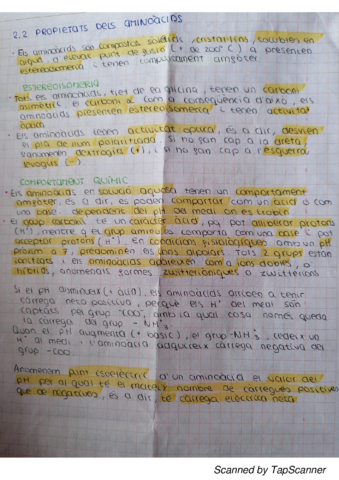 2.2 PROPIETATS DELS AMINOÀCIDS
· Els aminoàcids són compostos sòlids, cristal·lins, solubles en
aigua, a elevat punt de fusió (+ de 200°C) a presenten
estereoisomeria i tenen comportament amfòter.
ESTEREOISOMERIA
Tots els aminoàcids, tret de la glicina, tenen un carboni
asimètric, el carboni α com a conseqüència d'això, els
aminoàcids presenten estereoisomeria i tenen activitat
òptica.
· Els aminoàcids tenen activitat òptica, és a dir, desvien
el pla de llum polaritzada si ho fan cap a la dreta,
s'anomenen dextrogirs (+), i si ho fan cap a l'esquerra,
levogirs (-).
COMPORTAMENT QUÍMIC
· Els aminoàcids en solució aquosa tenen un comportament
amfòter, és a dir, es poden comportar com un àcid o com
una base dependent del pH del medi on es trobin.
· El grup carboxil té un caràcter àcid, pq pot alliberar protons
(H⁺), mentre q el grup amino es comporta com una base i pot
acceptar protons (H⁺). En condicions fisiològiques amb un pH
pròxim a 7, predominen els ions dipolars. Tots 2 grups estan
ionitzats i els aminoàcids apareixen com a ions dobles, o
híbrids, anomenats formes zwitteriòniques o zwitterions
Si el pH disminueix (+ àcid), els aminoàcids arriben a tenir
càrrega neta positiva, perquè els H⁺ del medi són
captats pel grup -COO⁻, amb la qual cosa només queda
la càrrega del grup -NH₃⁺
Quan el pH augmenta (+ bàsic), el grup -NH₃⁺, cedeix un
H⁺ al medi i l'aminoàcid adquireix càrrega negativa del
grup -COO⁻
Anomenem punt isoelèctric d'un aminoàcid el valor del
pH per al qual té el mateix nombre de càrregues positives
que de negatives, és a dir, té càrrega elèctrica neta
Scanned by TapScanner